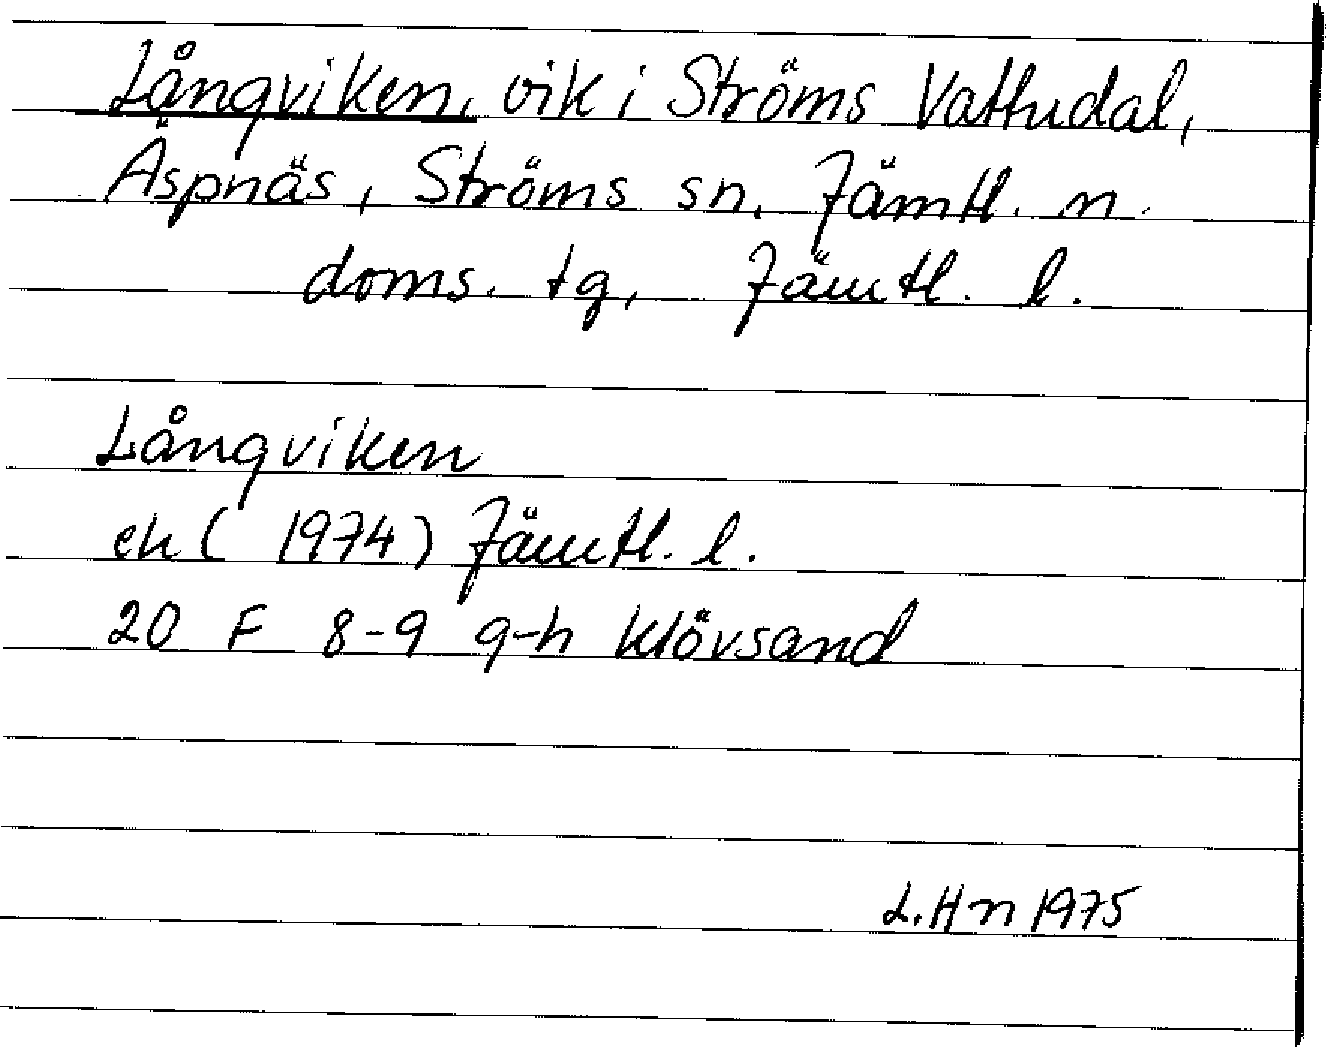 Långviken, vik i Ströms Vattudal,
Äspnäs, Ströms sn, Jämtl. n.
doms. tg, Jämtl. l.
Långviken
ek (1974) Jämtl. l.
20 F 8-9 g-h Klövsand
L.Hn 1975